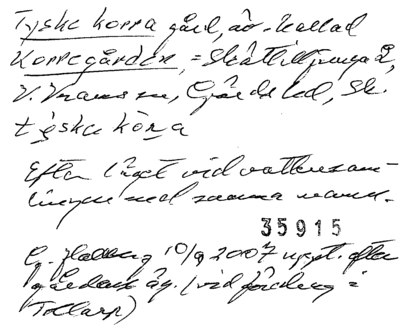 Tyska koppa gård, äv. kallad
Koppegården, = Skättilljunga 2,
V. Vrams sn, Gärds hd, Sk.
týska kòpa
Efter läget vid vattensam-
lingen med samma namn.
35915
G. Hallberg 10/9 2007 uppt. efter
gårdens äg. (vid fördrag i
Tollarp)